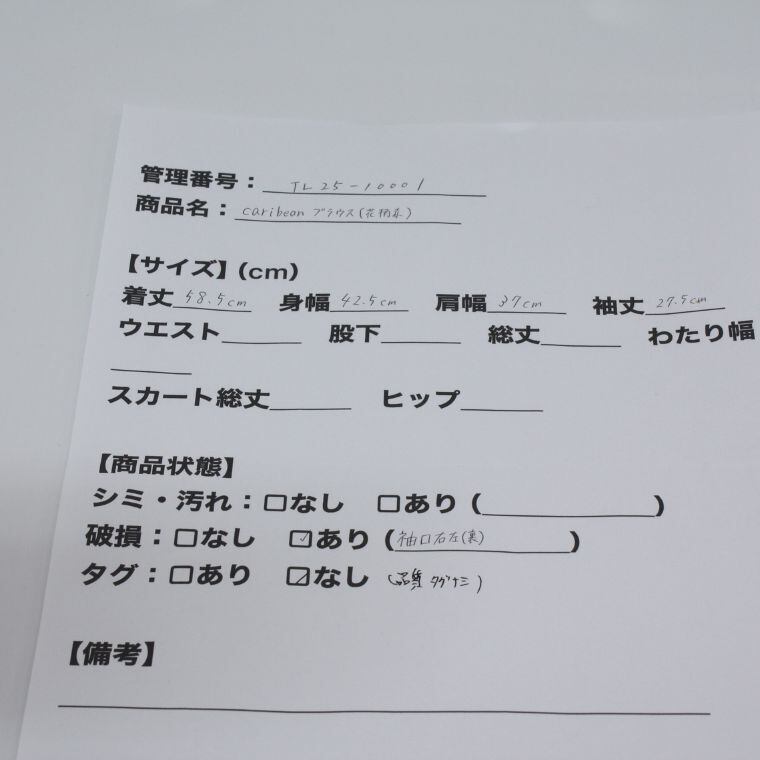 管理番号： TL25-10001
商品名： caribean ブラウス(花柄系)
【サイズ】(cm)
着丈 58.5cm 身幅 42.5cm 肩幅 37cm 袖丈 27.5cm
ウエスト 股下 総丈 わたり幅
スカート総丈 ヒップ
【商品状態】
シミ・汚れ：□なし □あり ( )
破損：□なし ☑あり (袖口右左(裏))
タグ：□あり ☑なし (品質タグナシ)
【備考】